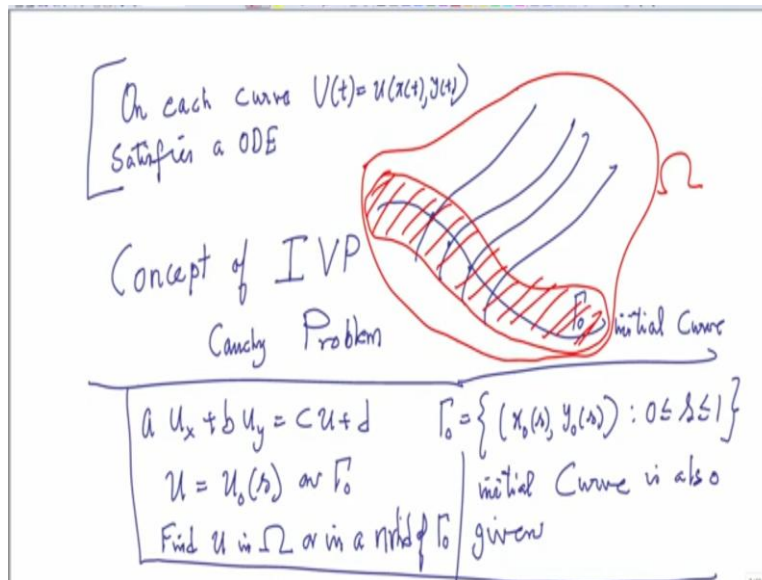 On each curve U(t)=u(x(t),y(t))
Satisfies a ODE
Ω
Concept of IVP
Cauchy Problem
Γ₀ initial Curve
a u_x + b u_y = cu + d
u = u₀(s) on Γ₀
Find u in Ω or in a nbhd of Γ₀
Γ₀ = { (x₀(s), y₀(s)) : 0 ≤ s ≤ 1 }
initial Curve is also
given